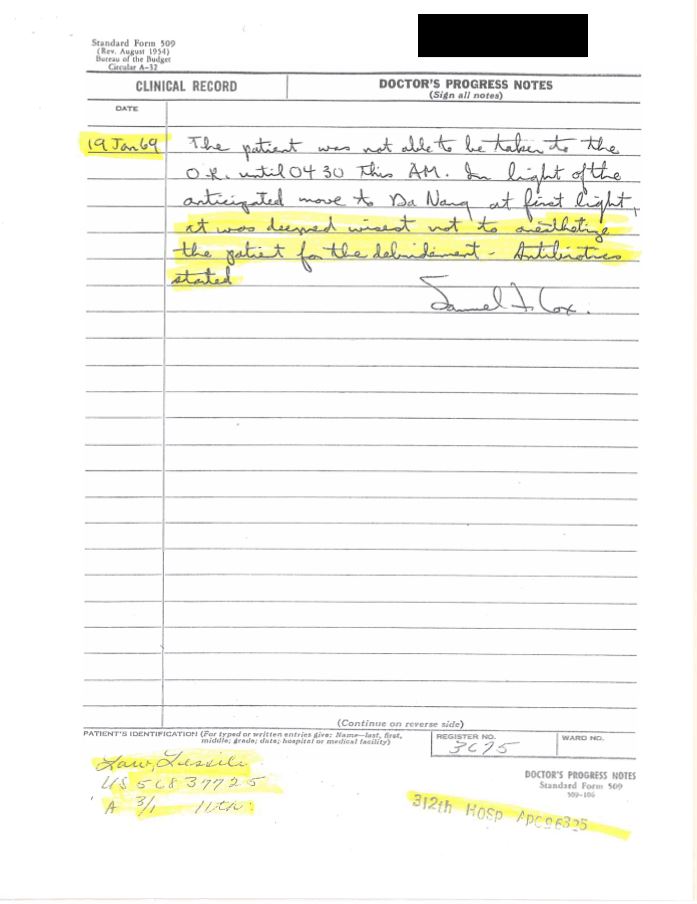 Standard Form 509
(Rev. August 1954)
Bureau of the Budget
Circular A-32
CLINICAL RECORD
DOCTOR'S PROGRESS NOTES
(Sign all notes)
DATE
19 Jan 69
The patient was not able to be taken to the
O.R. until 0430 this AM. In light of the
anticipated move to Da Nang at first light,
it was deemed wisest not to anesthetize
the patient for the debridement - Antibiotics
stated
Samuel J. Cox.
(Continue on reverse side)
PATIENT'S IDENTIFICATION (For typed or written entries give: Name—last, first,
middle; grade; date; hospital or medical facility)
REGISTER NO.
3675
WARD NO.
Law,
US 56837725
A 3/1 11th
DOCTOR'S PROGRESS NOTES
Standard Form 509
509-106
312th HOSP APO 96325